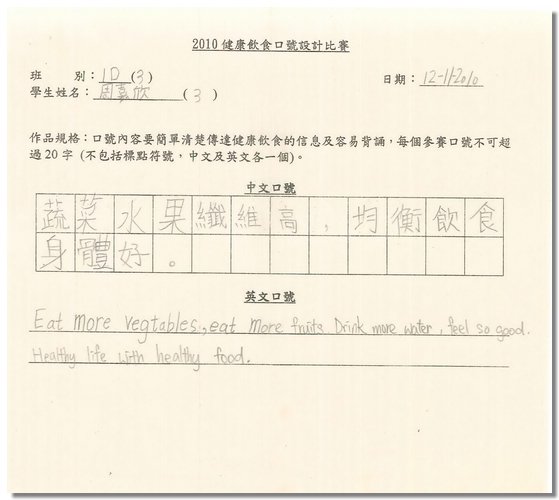 2010 健康飲食口號設計比賽
班 別：1D (3) 日期：12-11-2010
學生姓名：周嘉欣 (3)
作品規格：口號內容要簡單清楚傳達健康飲食的信息及容易背誦，每個參賽口號不可超
過20字 (不包括標點符號，中文及英文各一個)。
中文口號
蔬菜水果纖維高，均衡飲食
身體好。
英文口號
Eat more vegtables, eat more fruits Drink more water, feel so good.
Healthy life with healthy food.